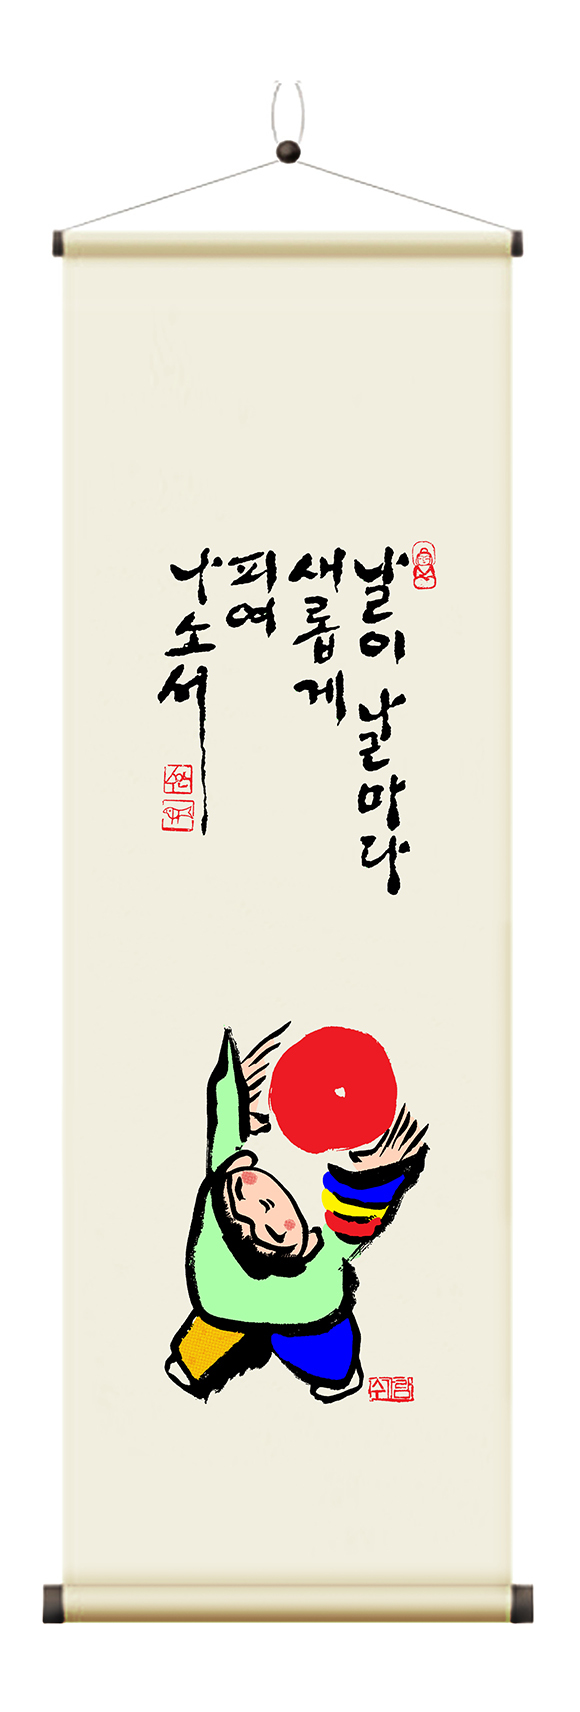 날이 날마다
새롭게
피여
나소서